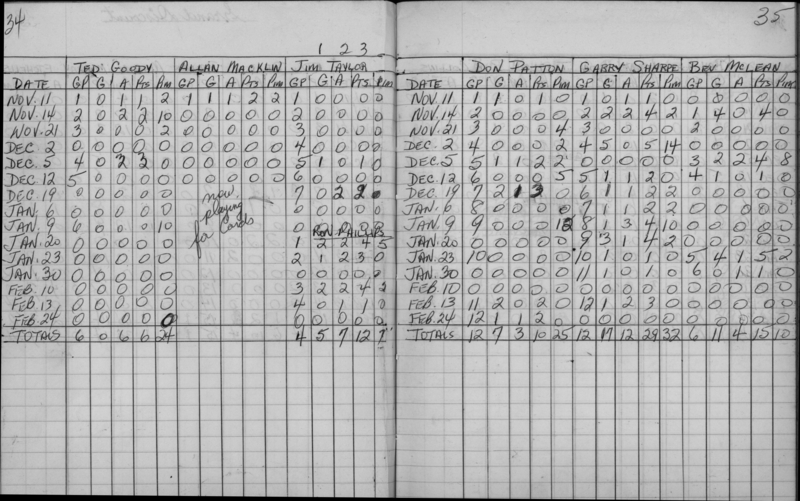 34
35
1 2 3
TED GOODY ALLAN MACKLIN JIM TAYLOR
DATE GP G A Pts Pim GP G A Pts Pim GP G A Pts. Pim
NOV. 11 1 0 1 1 2 1 1 1 2 2 1 0 0 0 0
NOV. 14 2 0 2 2 10 0 0 0 0 0 2 0 0 0 0
NOV. 21 3 0 0 0 2 0 0 0 0 0 3 0 0 0 0
DEC. 2 0 0 0 0 0 0 0 0 0 0 4 0 0 0 0
DEC. 5 4 0 2 2 0 0 0 0 0 0 5 1 0 1 0
DEC. 12 5 0 0 0 0 0 0 0 0 0 6 0 0 0 0
DEC. 19 0 0 0 0 0 7 0 2 2 0
now
playing
for Cards
JAN. 6 0 0 0 0 0
JAN. 9 6 0 0 0 10
RON PHILLIPS
JAN. 20 0 0 0 0 0 1 2 2 4 5
JAN. 23 0 0 0 0 0 2 1 2 3 0
JAN. 30 0 0 0 0 0 0 0 0 0 0
FEB. 10 0 0 0 0 0 3 2 2 4 2
FEB. 13 0 0 0 0 0 4 0 1 1 0
FEB. 24 0 0 0 0 0 0 0 0 0 0
TOTALS 6 0 6 6 24 4 5 7 12 7
DON PATTON GARRY SHARPE BEV McLEAN
DATE GP G A Pts Pim GP G A Pts Pim GP G A Pts Pim
NOV. 11 1 1 0 1 0 1 0 1 1 0 0 0 0 0 0
NOV. 14 2 0 0 0 0 2 2 2 4 2 1 4 0 4 0
NOV. 21 3 0 0 0 4 3 0 0 0 0 2 0 0 0 0
DEC. 2 4 0 0 0 2 4 5 0 5 14 0 0 0 0 0
DEC. 5 5 1 1 2 2 0 0 0 0 0 3 2 2 4 8
DEC. 12 6 0 0 0 5 5 1 1 2 0 4 1 0 1 0
DEC. 19 7 2 1 3 0 6 1 1 2 2 0 0 0 0 0
JAN. 6 8 0 0 0 0 7 1 1 2 2 0 0 0 0 0
JAN. 9 9 0 0 0 12 8 1 3 4 10 0 0 0 0 0
JAN. 20 0 0 0 0 0 9 3 1 4 2 0 0 0 0 0
JAN. 23 10 0 0 0 0 10 1 0 1 0 5 4 1 5 2
JAN. 30 0 0 0 0 0 11 1 0 1 0 6 0 1 1 0
FEB. 10 0 0 0 0 0 0 0 0 0 0 0 0 0 0 0
FEB. 13 11 2 0 2 0 12 1 2 3 0 0 0 0 0 0
FEB. 24 12 1 1 2 0 0 0 0 0 0 0 0 0 0 0
TOTALS 12 7 3 10 25 12 17 12 29 32 6 11 4 15 10